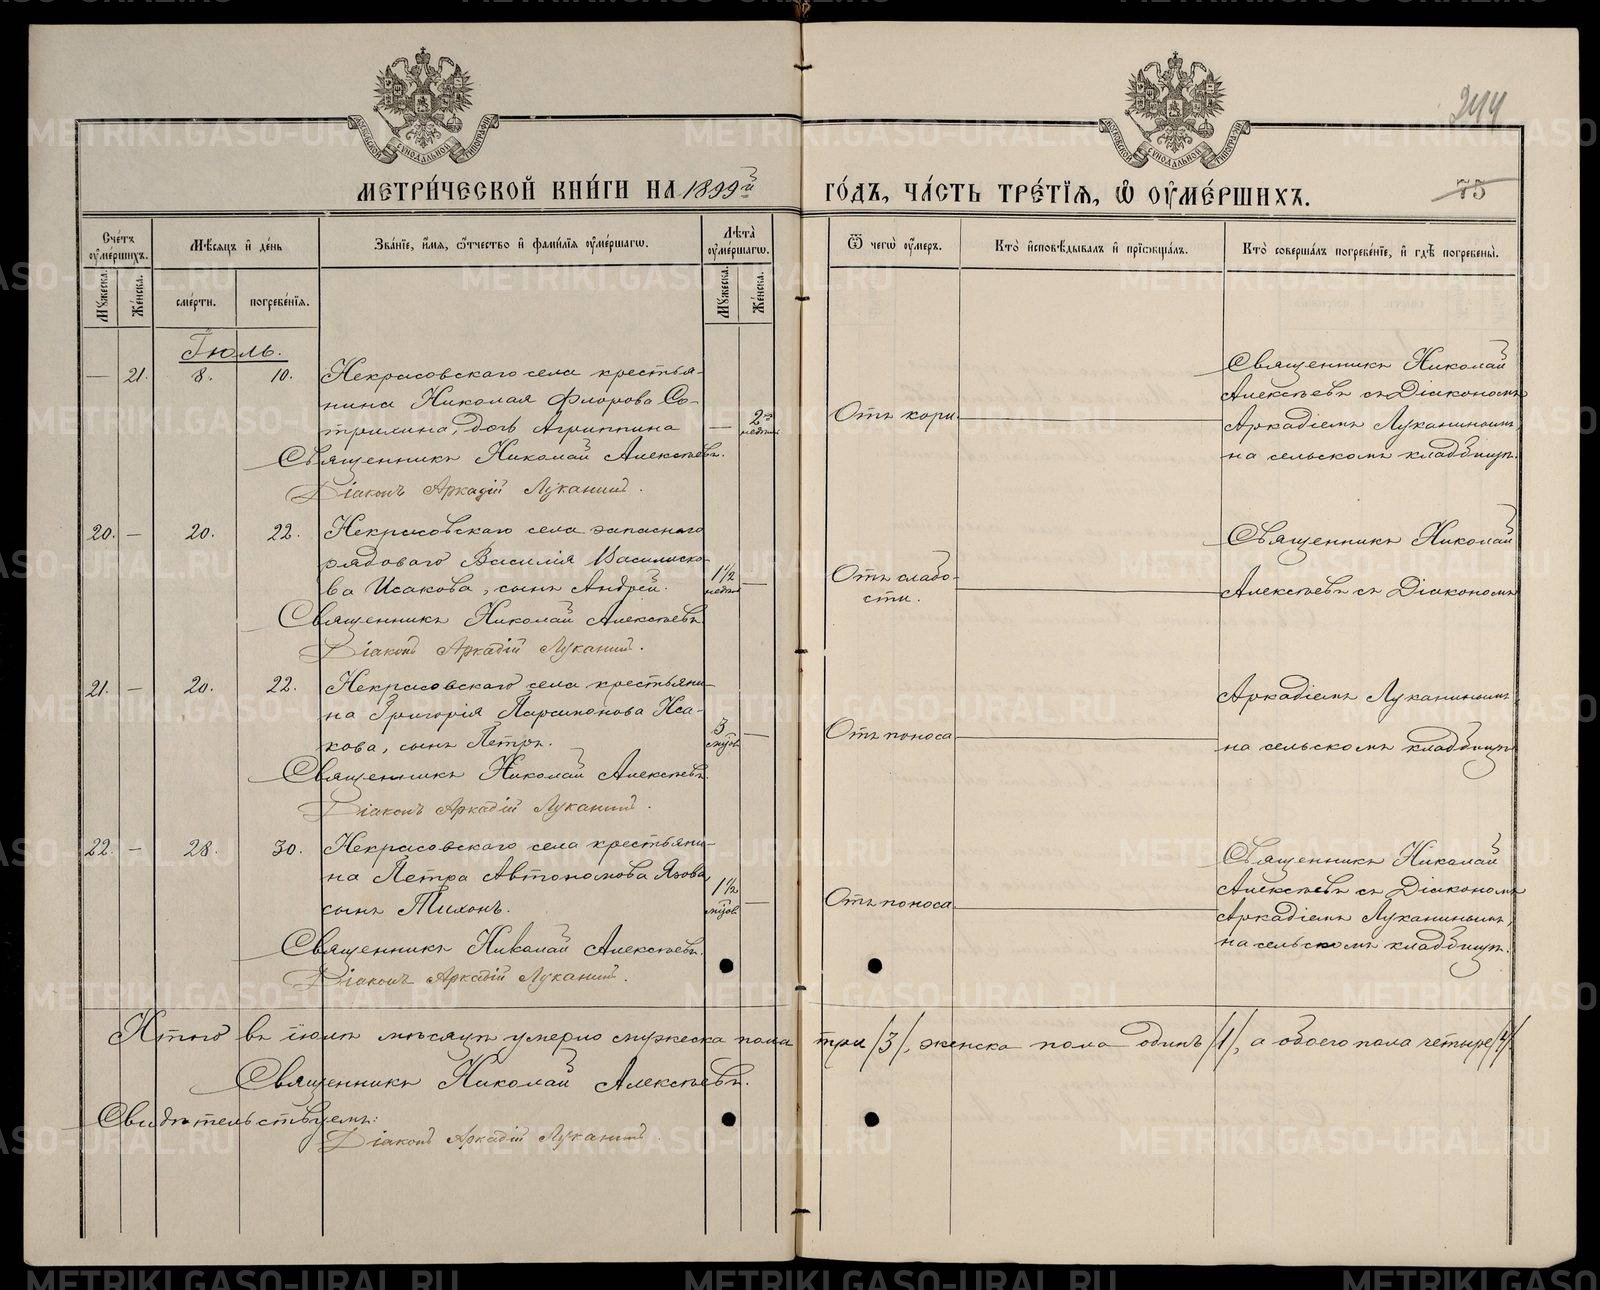 244
75
МЕТРИ́ЧЕСКОЙ КНИ́ГИ НА 1899й ГО́ДЪ, ЧА́СТЬ ТРЕ́ТІѦ, Ѡ҆ ОУ҆МЕ́РШИХЪ.
Сче́тъ оу҆ме́ршихъ.
Мѣ́сяцъ и҆ де́нь
Зва́нїе, и҆́мя, ѻ҆́тчество и҆ фами́лїя оу҆ме́ршагѡ.
Лѣ́та оу҆ме́ршагѡ.
Ѿ чегѡ̀ оу҆́меръ.
Кто̀ и҆сповѣ́дывалъ и҆ прїѡбща́лъ.
Кто̀ соверша́лъ погребе́нїе, и҆ гдѣ̀ погребены̀.
Мꙋ́жеска.
Же́нска.
сме́рти.
погребе́нїя.
Мꙋ́жеска.
Же́нска.
Іюль.
— 21. 8. 10.
Некрасовскаго села крестья-
нина Николая Флорова Со-
трилина, дочь Агриппина
— 2 недѣли
Священникъ Николай Алексѣевъ.
Діаконъ Аркадій Луканинъ.
Отъ кори.
Священникъ Николай
Алексѣевъ съ Діакономъ
Аркадіемъ Луканинымъ
на сельскомъ кладбищѣ.
20. — 20. 22.
Некрасовскаго села запаснаго
рядоваго Василія Василиско-
ва Исакова, сынъ Андрей.
1½ недѣли —
Священникъ Николай Алексѣевъ.
Діаконъ Аркадій Луканинъ.
Отъ слабо-
сти.
Священникъ Николай
Алексѣевъ съ Діакономъ
21. — 20. 22.
Некрасовскаго села крестьяни-
на Григорія Парамонова Иса-
кова, сынъ Петръ.
3 мѣсяц. —
Священникъ Николай Алексѣевъ.
Діаконъ Аркадій Луканинъ.
Отъ поноса
Аркадіемъ Луканинымъ
на сельскомъ кладбищѣ
22. — 28. 30.
Некрасовскаго села крестьяни-
на Петра Автономова Язова,
сынъ Тихонъ.
1½ мѣсяц. —
Священникъ Николай Алексѣевъ.
Діаконъ Аркадій Луканинъ.
Отъ поноса.
Священникъ Николай
Алексѣевъ съ Діакономъ
Аркадіемъ Луканинымъ,
на сельскомъ кладбищѣ.
Итого въ іюлѣ мѣсяцѣ умерло мужеска пола три /3/, женска пола одинъ /1/, а обоего пола четыре /4/
Священникъ Николай Алексѣевъ.
Свидѣтельствуемъ:
Діаконъ Аркадій Луканинъ.
METRIKI.GASO-URAL.RU